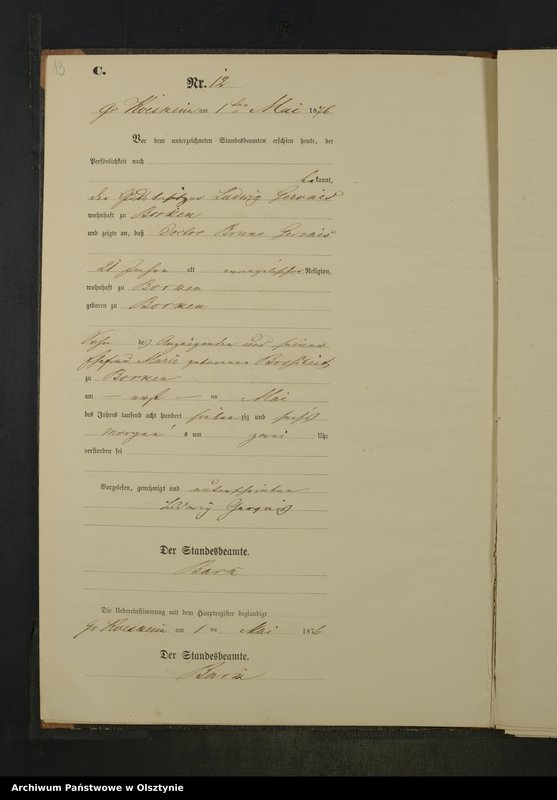 13
C.
Nr. 12
Gr. Koeskeim am 1ten Mai 1876
Vor dem unterzeichneten Standesbeamten erschien heute, der
Persönlichkeit nach
bekannt,
der Gutsbesitzer Ludwig Gervais
wohnhaft zu Borken
und zeigte an, daß Doctor Bruno Gervais
Jahre alt evangelischer Religion,
wohnhaft zu Borken
geboren zu Borken
Sohn des Anzeigenden und seiner
Ehefrau Marie geborenen
zu Borken
am ersten Mai
des Jahres tausend acht hundert siebenzig und sechs
Morgens um zwei Uhr
verstorben sei
Vorgelesen, genehmigt und unterschrieben
Ludwig Gervais
Der Standesbeamte.
Die Uebereinstimmung mit dem Hauptregister beglaubigt
Gr. Koeskeim am 1ten Mai 1876
Der Standesbeamte.
Archiwum Państwowe w Olsztynie